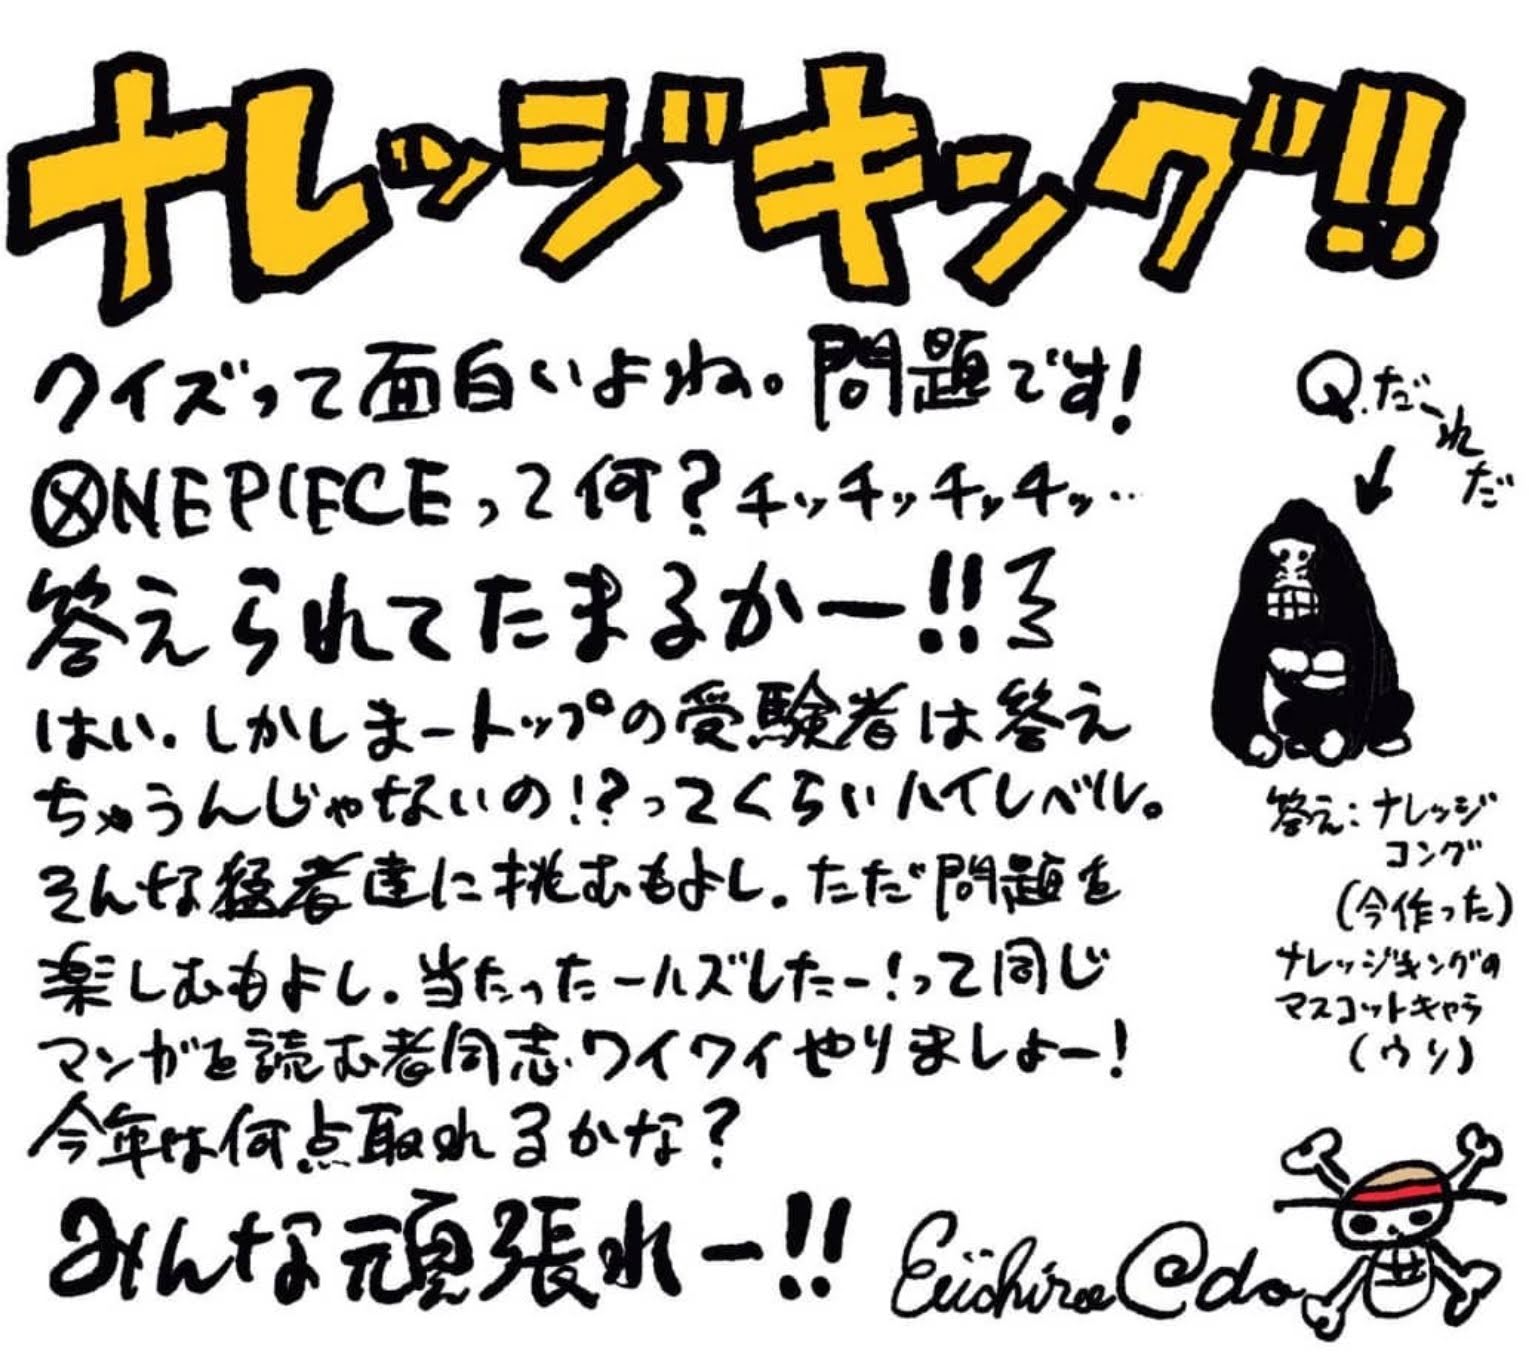 ナレッジキング!!
クイズって面白いよね。問題です!
ONE PIECEって何?チッチッチッチッ…
答えられてたまるかー!!
はい.しかしまートップの受験者は答え
ちゃうんじゃないの!?ってくらいハイレベル。
そんな猛者達に挑むもよし.ただ問題を
楽しむもよし.当たったールズしたー!って同じ
マンガを読む者同志.ワイワイやりましょー!
今年は何点取れるかな?
みんな頑張れー!!
Eiichiro Oda
Q.だーれだ
答え:ナレッジ
コング
(今作った)
ナレッジキングの
マスコットキャラ
(ウソ)